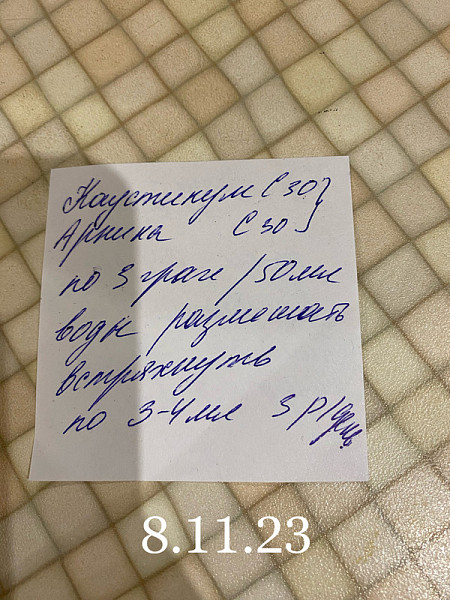 Каустикум С 30 }
Арника С 30
по 3 гран / 50 мл
воды размешать
встряхнуть
по 3-4 мл 3 р/день
8.11.23